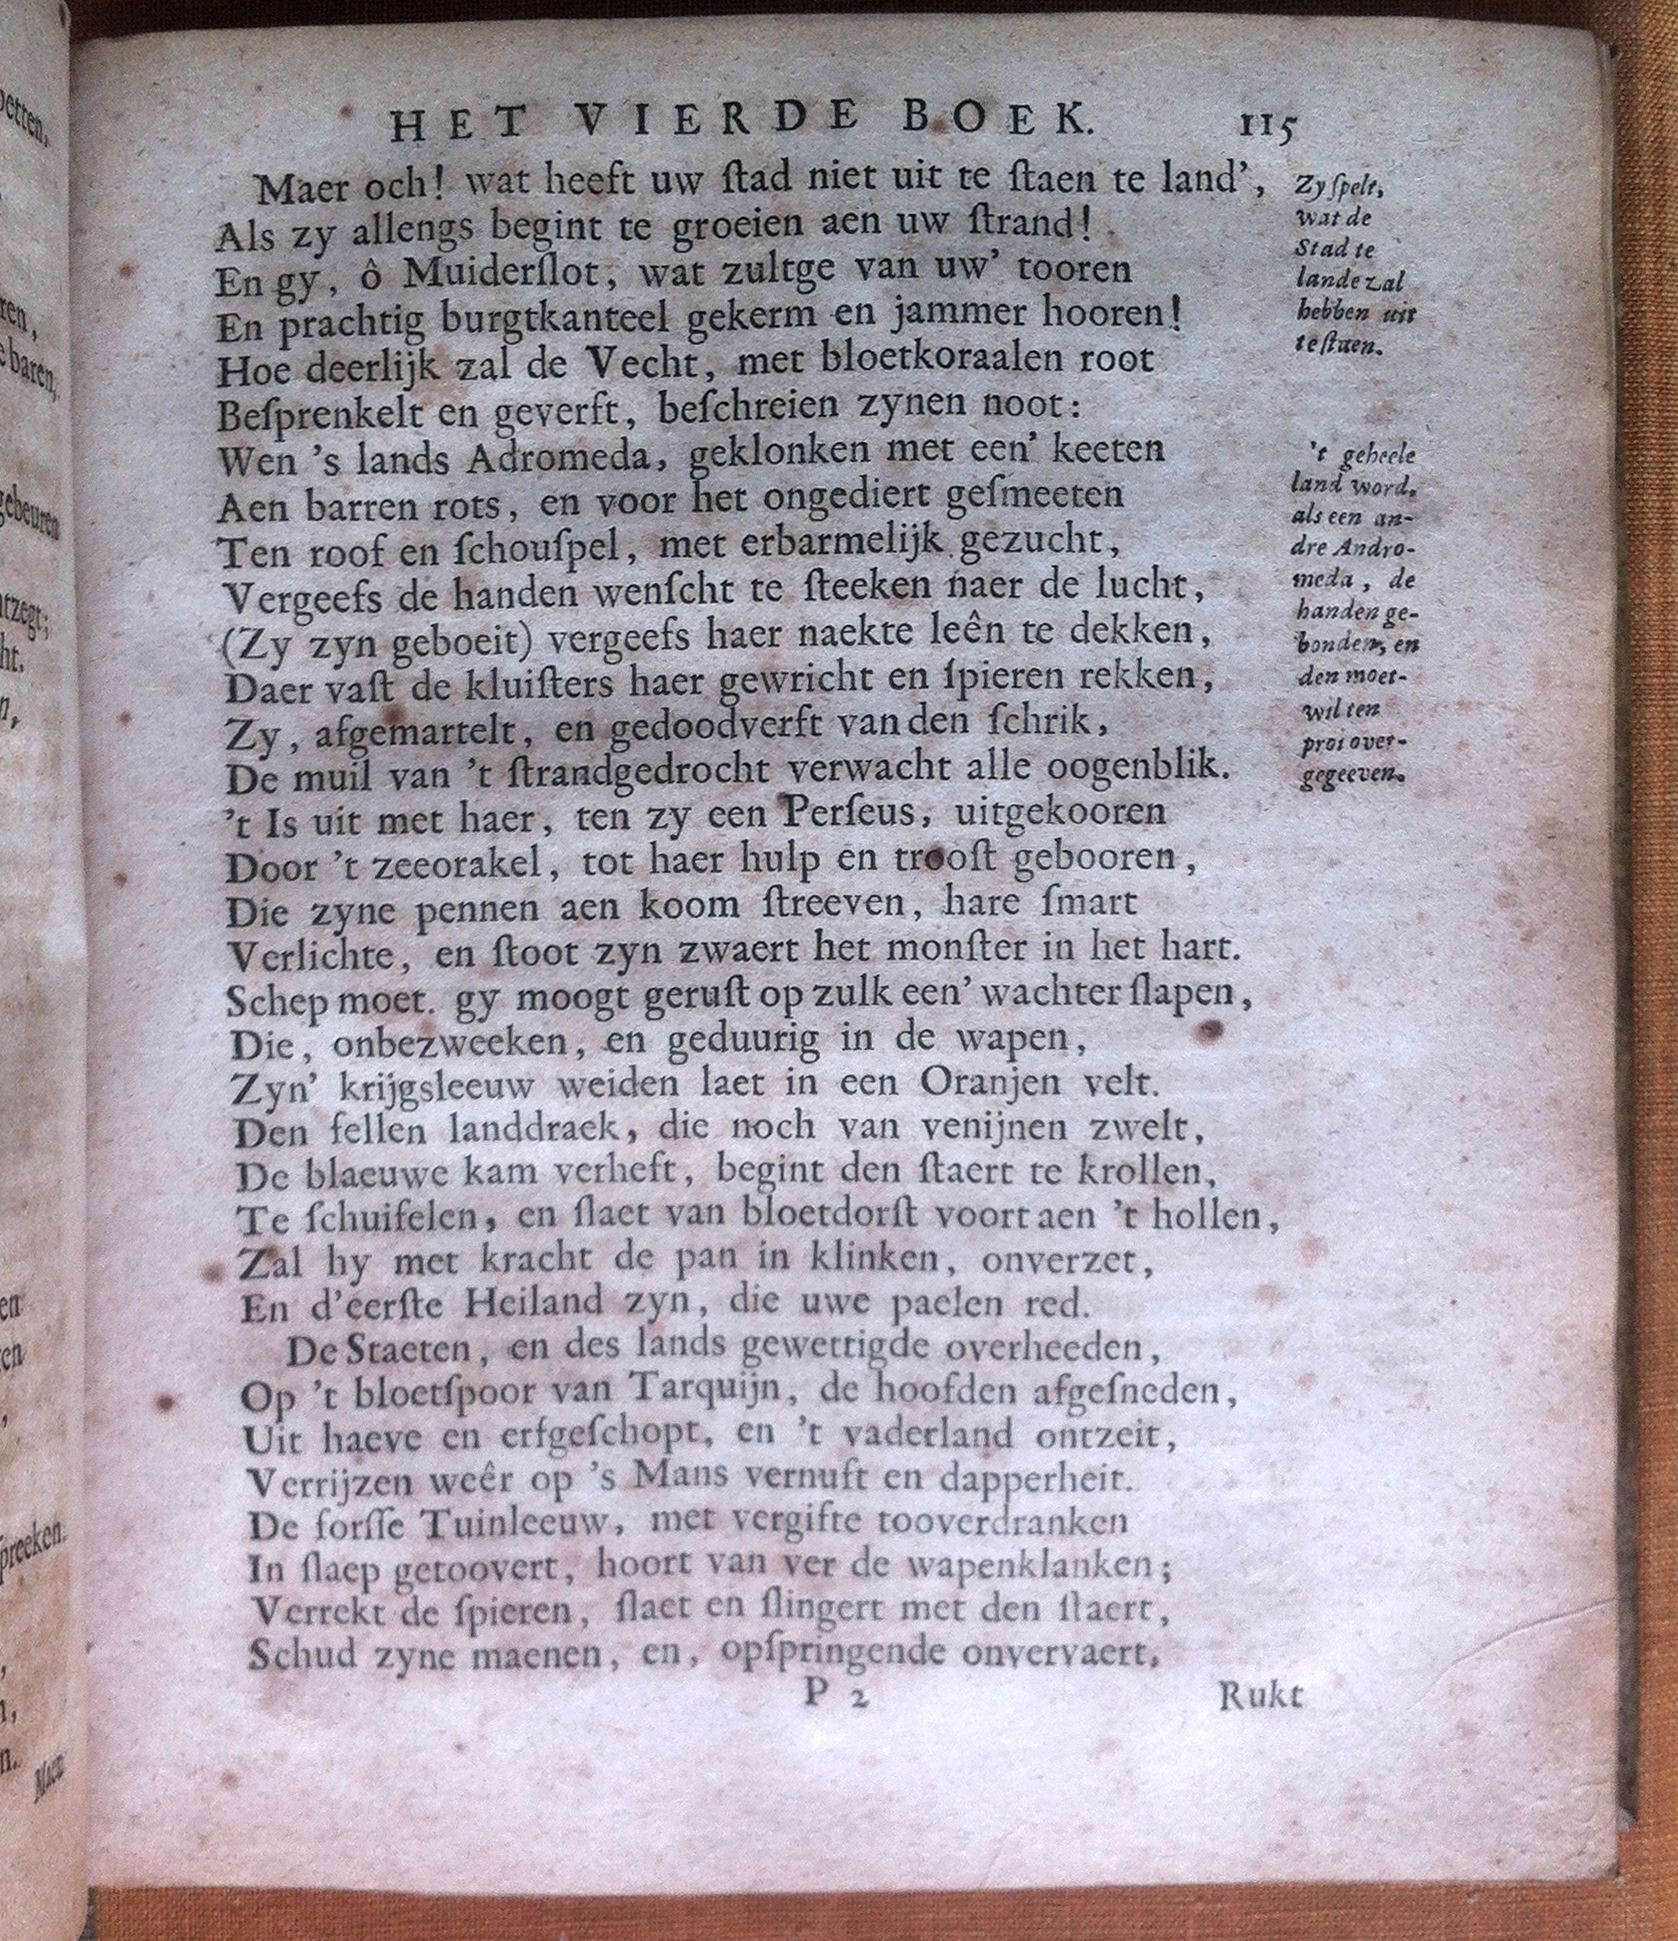 HET VIERDE BOEK. 115
Maer och! wat heeft uw ſtad niet uit te ſtaen te land’,
Als zy allengs begint te groeien aen uw ſtrand!
En gy, ô Muiderſlot, wat zultge van uw’ tooren
En prachtig burgtkanteel gekerm en jammer hooren!
Hoe deerlijk zal de Vecht, met bloetkoraalen root
Beſprenkelt en geverft, beſchreien zynen noot:
Wen ’s lands Adromeda, geklonken met een’ keeten
Aen barren rots, en voor het ongediert geſmeeten
Ten roof en ſchouſpel, met erbarmelijk gezucht,
Vergeefs de handen wenſcht te ſteeken naer de lucht,
(Zy zyn geboeit) vergeefs haer naekte leên te dekken,
Daer vaſt de kluiſters haer gewricht en ſpieren rekken,
Zy, afgemartelt, en gedoodverft van den ſchrik,
De muil van ’t ſtrandgedrocht verwacht alle oogenblik.
’t Is uit met haer, ten zy een Perſeus, uitgekooren
Door ’t zeeorakel, tot haer hulp en trooſt gebooren,
Die zyne pennen aen koom ſtreeven, hare ſmart
Verlichte, en ſtoot zyn zwaert het monſter in het hart.
Schep moet. gy moogt geruſt op zulk een’ wachter ſlapen,
Die, onbezweeken, en geduurig in de wapen,
Zyn’ krijgsleeuw weiden laet in een Oranjen velt.
Den fellen landdraek, die noch van venijnen zwelt,
De blaeuwe kam verheft, begint den ſtaert te krollen,
Te ſchuifelen, en ſlaet van bloetdorſt voort aen ’t hollen,
Zal hy met kracht de pan in klinken, onverzet,
En d’eerſte Heiland zyn, die uwe paelen red.
De Staeten, en des lands gewettigde overheeden,
Op ’t bloetſpoor van Tarquijn, de hoofden afgeſneden,
Uit haeve en erfgeſchopt, en ’t vaderland ontzeit,
Verrijzen weêr op ’s Mans vernuft en dapperheit.
De forſſe Tuinleeuw, met vergifte tooverdranken
In ſlaep getoovert, hoort van ver de wapenklanken;
Verrekt de ſpieren, ſlaet en ſlingert met den ſtaert,
Schud zyne maenen, en, opſpringende onvervaert,
P 2 Rukt
Zy ſpelt,
wat de
Stad te
lande zal
hebben uit
te ſtaen.
’t geheele
land word,
als een an-
dre Andro-
meda, de
handen ge-
bonden, en
den moet-
wil ten
proi over-
gegeeven.
oetten,
ren,
baren,
gebeuren
ntzegt;
ht.
n,
en
en
ſpreeken.
n.
Maer